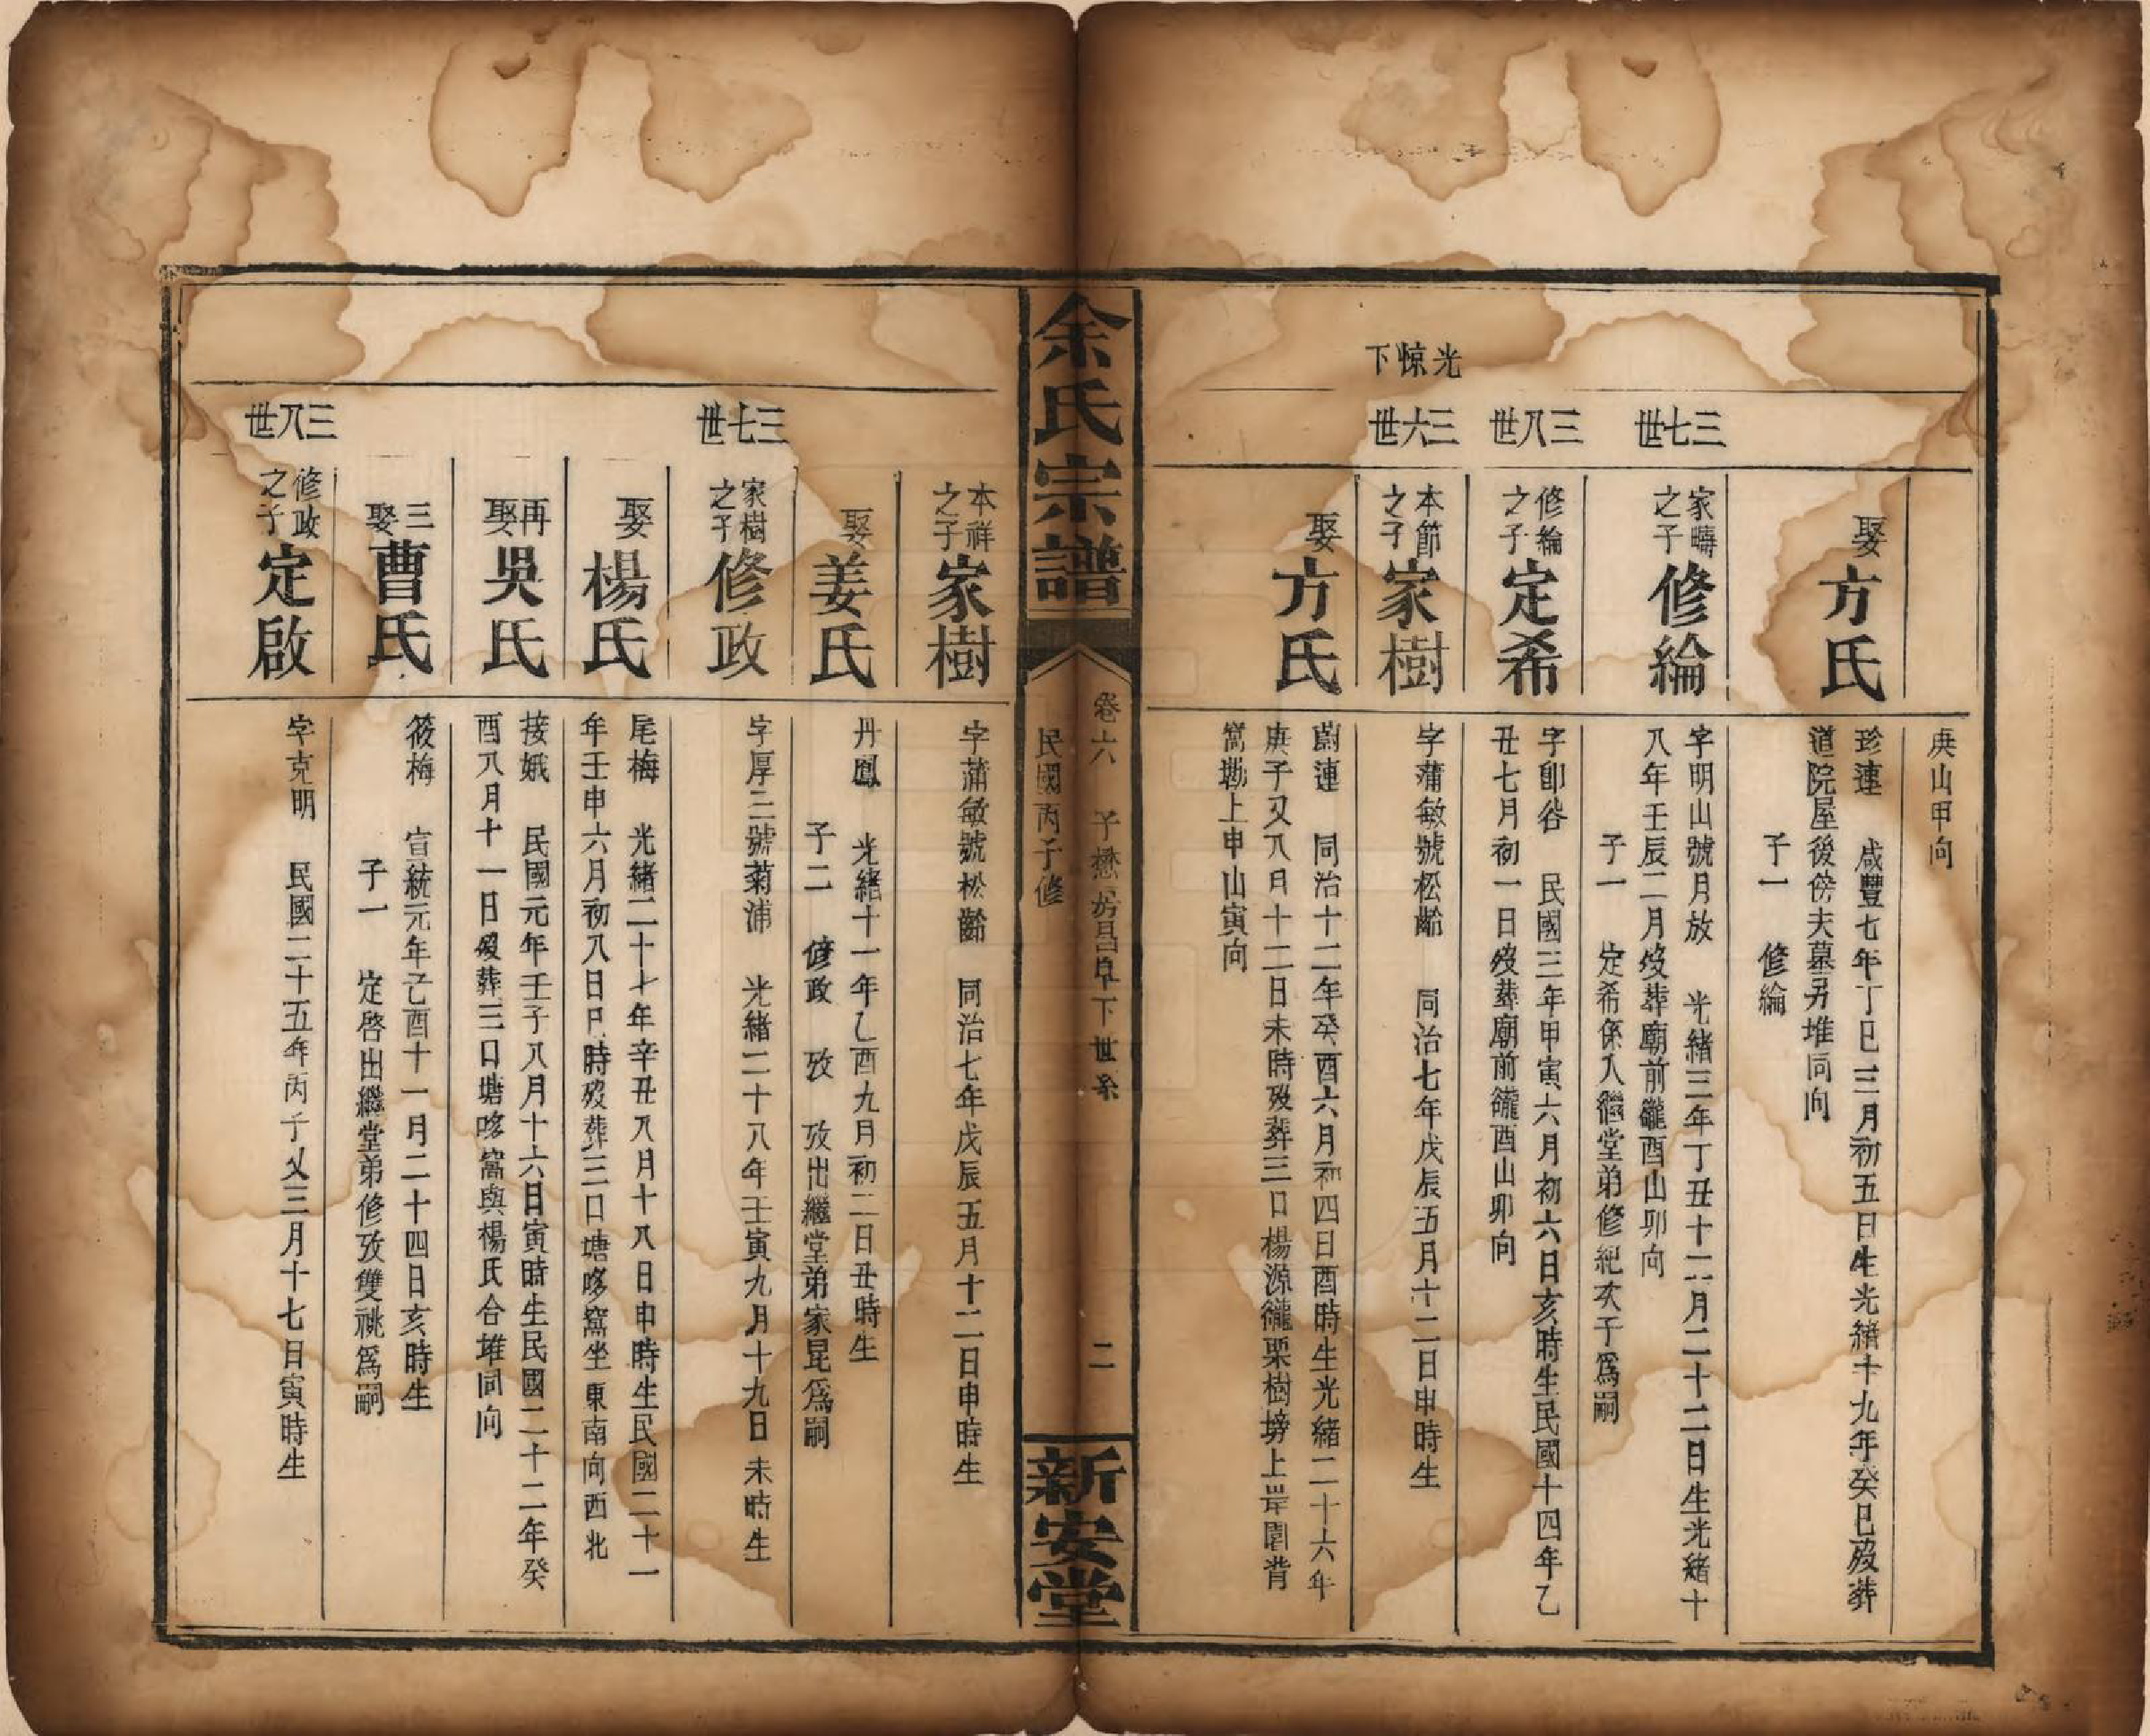 光惊下
庚山甲向
娶方氏
珍連　咸豐七年丁巳三月初五日生光緒十九年癸巳歿葬
道院屋後傍夫墓另堆同向
子一　修綸
三七世
家疇之子修綸
字明山號月放　光緒三年丁丑十二月二十二日生光緒十
八年壬辰二月歿葬廟前𡾋酉山卯向
子一　定希係入繼堂弟修紀次子爲嗣
三八世
修綸之子定希
字卽谷　民國三年甲寅六月初六日亥時生民國十四年乙
丑七月初一日歿葬廟前𡾋酉山卯向
三六世
本節之子家樹
字蒲敏號松齡　同治七年戊辰五月十二日申時生
娶方氏
蔚連　同治十二年癸酉六月初四日酉時生光緒二十六年
庚子又八月十二日未時歿葬三口楊源𡾋栗樹塝上岸園背
窩塝上申山寅向
余氏宗譜
卷六　予懋房昌阜下世系　二
民國丙子修
新安堂
本祥之子家樹
字蒲敏號松齡　同治七年戊辰五月十二日申時生
娶姜氏
丹鳳　光緒十一年乙酉九月初二日丑時生
子二　修政　攷　攷出繼堂弟家昆爲嗣
三七世
家樹之子修政
字厚三號菊浦　光緒二十八年壬寅九月十九日未時生
娶楊氏
尾梅　光緒二十七年辛丑八月十八日申時生民國二十一
年壬申六月初八日巳時歿葬三口塘哆窩坐東南向西北
再娶吳氏
接娥　民國元年壬子八月十六日寅時生民國二十二年癸
酉八月十一日歿葬三口塘哆窩與楊氏合堆同向
三娶曹氏
筱梅　宣統元年己酉十一月二十四日亥時生
子一　定啓出繼堂弟修攷雙祧爲嗣
三八世
修政之子定啟
字克明　民國二十五年丙子又三月十七日寅時生